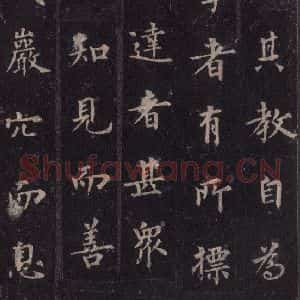 其教自為
者有所標
達者甚眾
知見而善
巖穴而息
ShufaWang.CN